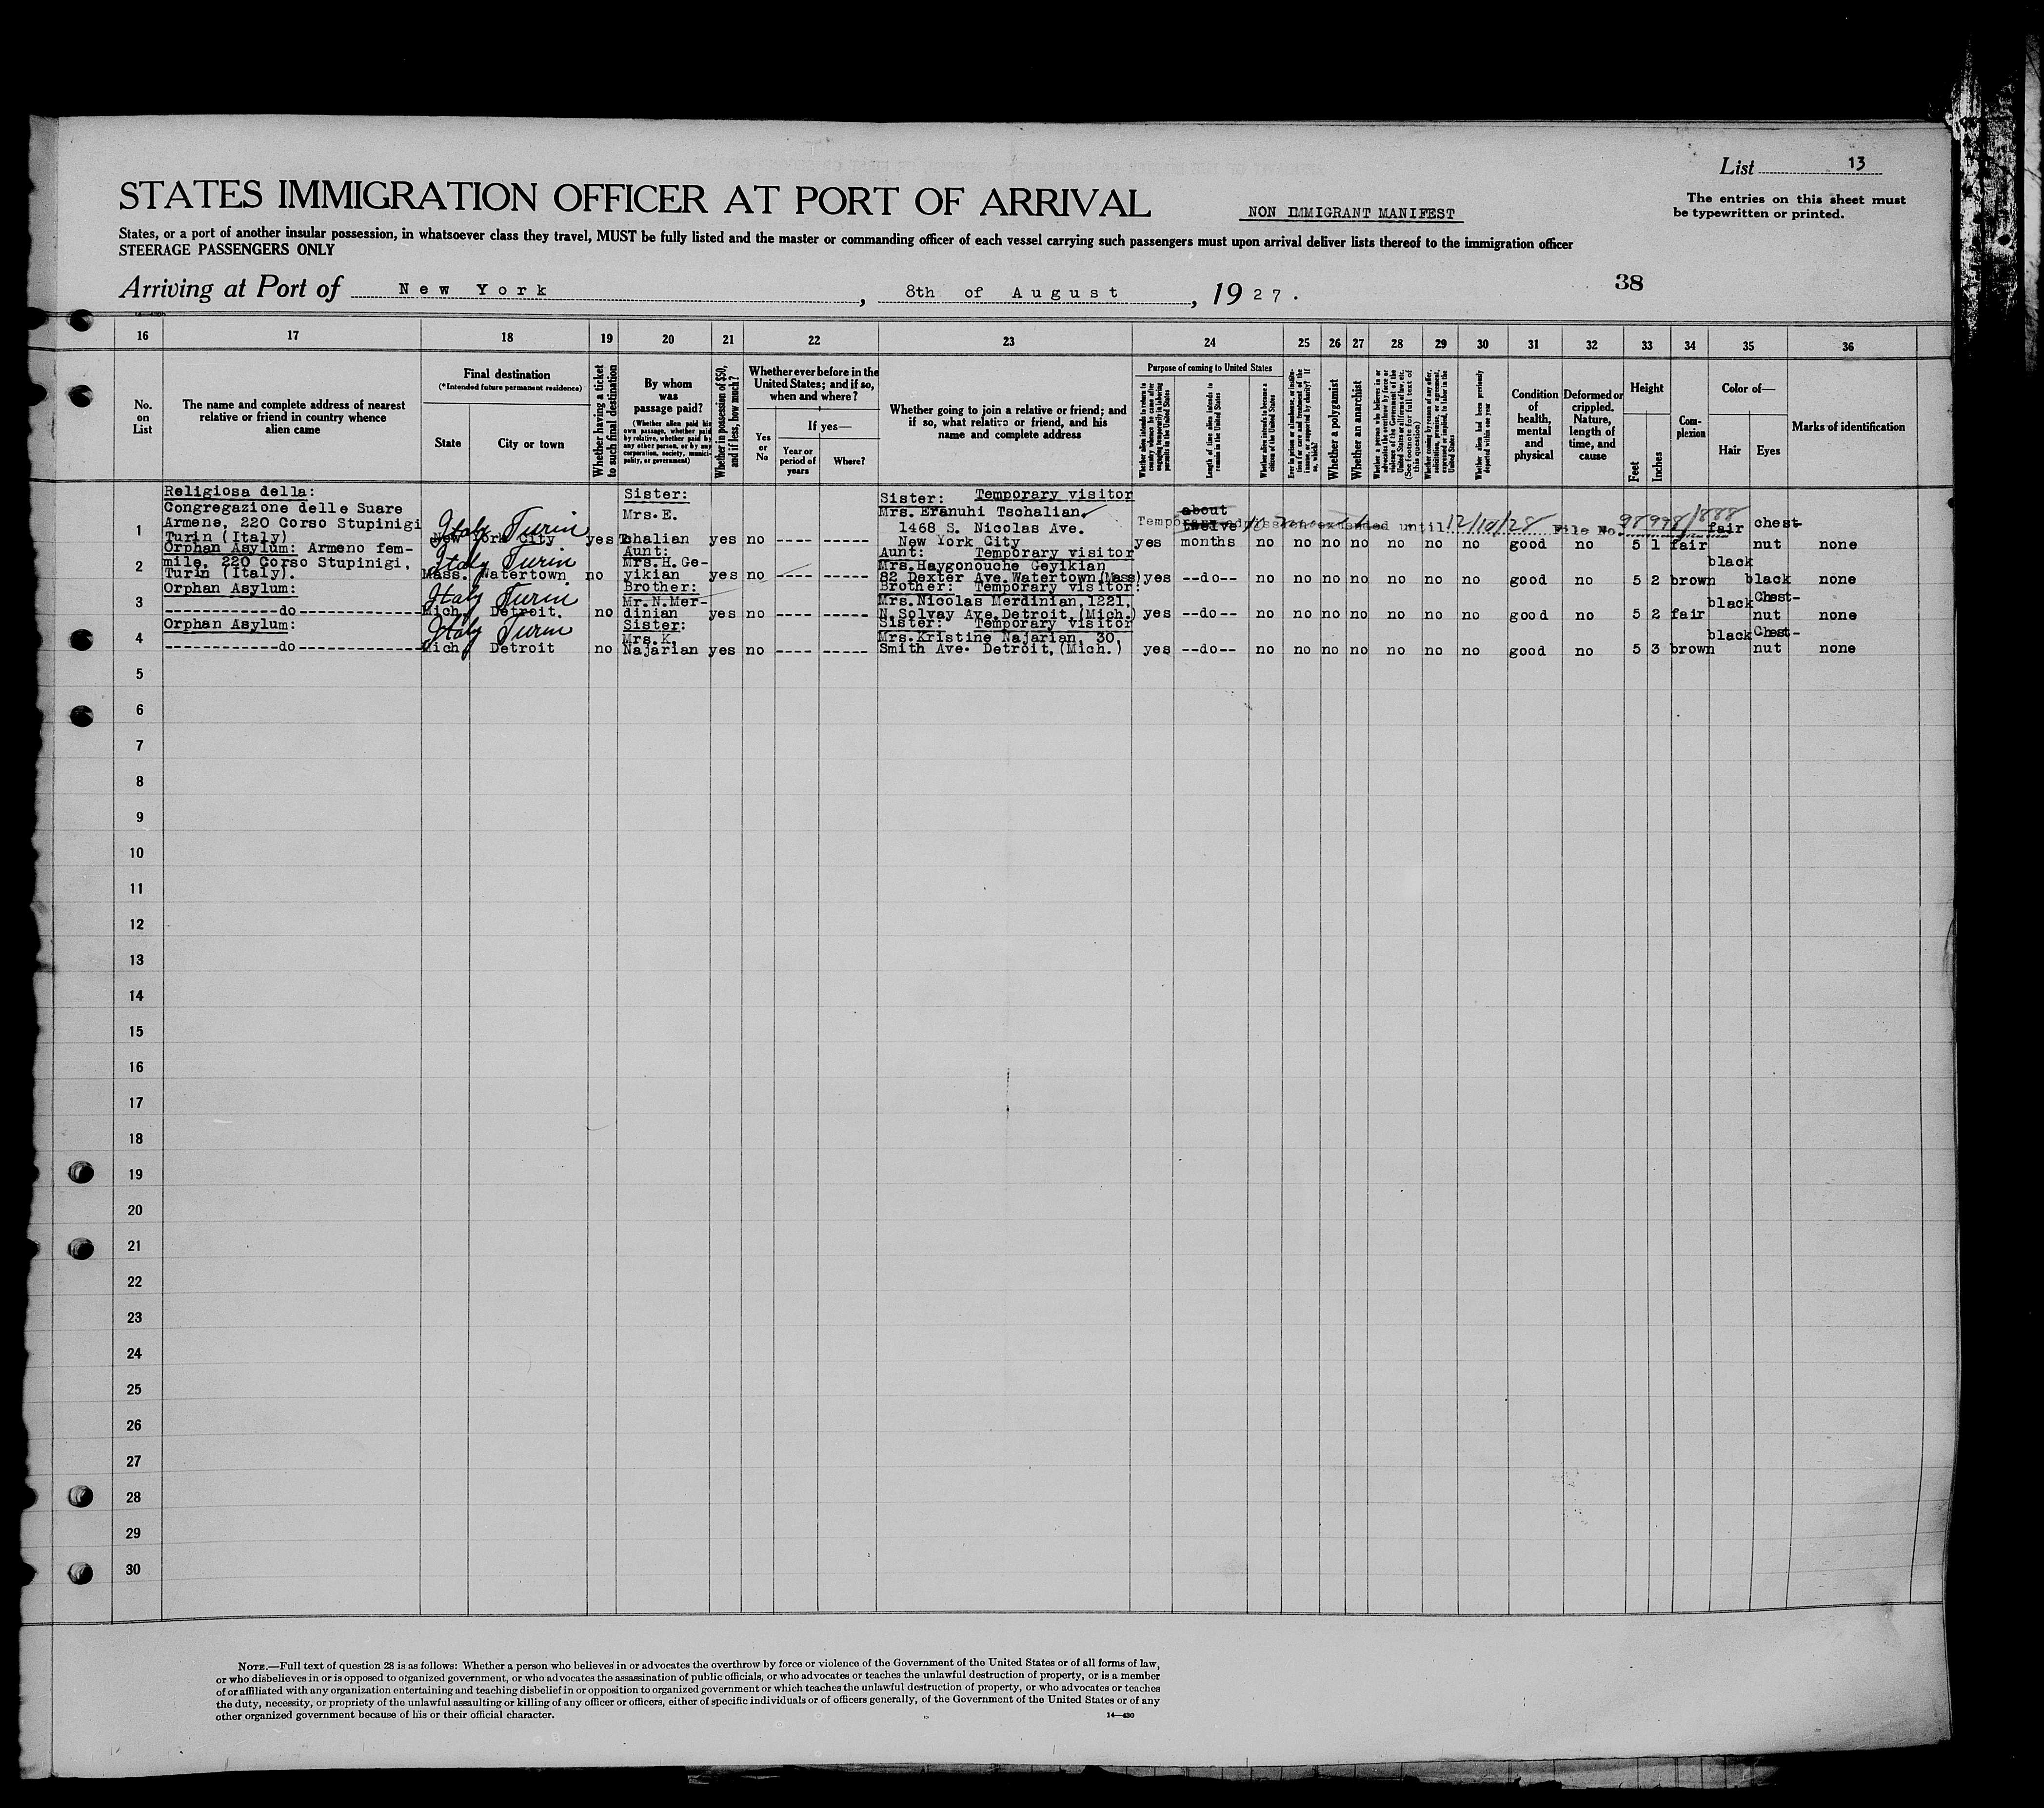 List 13
STATES IMMIGRATION OFFICER AT PORT OF ARRIVAL
NON IMMIGRANT MANIFEST
The entries on this sheet must
be typewritten or printed.
States, or a port of another insular possession, in whatsoever class they travel, MUST be fully listed and the master or commanding officer of each vessel carrying such passengers must upon arrival deliver lists thereof to the immigration officer
STEERAGE PASSENGERS ONLY
Arriving at Port of New York, 8th of August, 1927.
38
16 17 18 19 20 21 22 23 24 25 26 27 28 29 30 31 32 33 34 35 36
No. on List
The name and complete address of nearest
relative or friend in country whence
alien came
Final destination
(*Intended future permanent residence)
State
City or town
Whether having a ticket
to such final destination
By whom
was
passage paid?
(Whether alien paid his
own passage, whether paid
by relative, whether paid by
any other person, or by any
corporation, society, munici-
pality, or government)
Whether in possession of $50,
and if less, how much?
Whether ever before in the
United States; and if so,
when and where?
Yes
or
No
If yes—
Year or
period of
years
Where?
Whether going to join a relative or friend; and
if so, what relative or friend, and his
name and complete address
Purpose of coming to United States
Whether alien intends to return to
country whence he came after
engaging temporarily in laboring
pursuits in the United States
Length of time alien intends to
remain in the United States
Whether alien intends to become a
citizen of the United States
Ever in prison or almshouse, or institu-
tion for care and treatment of the
insane, or supported by charity? If
so, which?
Whether a polygamist
Whether an anarchist
Whether a person who believes in or
advocates the overthrow by force or
violence of the Government of the
United States or all forms of law, etc.
(See footnote for full text of
this question)
Whether coming by reason of any offer,
solicitation, promise, or agreement,
expressed or implied, to labor in the
United States
Whether alien had been previously
deported within one year
Condition
of
health,
mental
and
physical
Deformed or
crippled.
Nature,
length of
time, and
cause
Height
Feet
Inches
Com-
plexion
Color of—
Hair
Eyes
Marks of identification
1
Religiosa della:
Congregazione delle Suare
Armene, 220 Corso Stupinigi
Turin (Italy)
Italy Turin
New York City
yes
Sister:
Mrs. E.
Tchalian
yes no ---- -----
Sister: Temporary visitor
Mrs. Eranuhi Tschalian
1468 S. Nicolas Ave.
New York City
yes
about
twelve
months
Temporary admission extended until 12/10/28 File No. 98998/888
no no no no no no no good no 5 1 fair
fair
chest-
nut
none
2
Orphan Asylum: Armeno fem-
mile, 220 Corso Stupinigi,
Turin (Italy).
Italy Turin
Mass. Watertown no
Aunt:
Mrs. H. Ge-
yikian
yes no ---- -----
Aunt: Temporary visitor
Mrs. Haygonouche Geyikian
82 Dexter Ave. Watertown (Mass)
yes --do-- no no no no no no no good no 5 2 brown black black none
3
Orphan Asylum:
------------do------------
Italy Turin
Mich. Detroit. no
Brother:
Mr. N. Mer-
dinian
yes no ---- -----
Brother: Temporary visitor:
Mrs. Nicolas Merdinian, 1221,
N. Solvay Ave. Detroit, (Mich.)
yes --do-- no no no no no no no good no 5 2 fair black Chest-
nut none
4
Orphan Asylum:
------------do------------
Italy Turin
Mich. Detroit no
Sister:
Mrs. K.
Najarian
yes no ---- -----
Sister: Temporary visitor
Mrs. Kristine Najarian, 30,
Smith Ave. Detroit, (Mich.)
yes --do-- no no no no no no no good no 5 3 brown black Chest-
nut none
5
6
7
8
9
10
11
12
13
14
15
16
17
18
19
20
21
22
23
24
25
26
27
28
29
30
NOTE.—Full text of question 28 is as follows: Whether a person who believes in or advocates the overthrow by force or violence of the Government of the United States or of all forms of law,
or who disbelieves in or is opposed to organized government, or who advocates the assassination of public officials, or who advocates or teaches the unlawful destruction of property, or is a member
of or affiliated with any organization entertaining and teaching disbelief in or opposition to organized government or which teaches the unlawful destruction of property, or who advocates or teaches
the duty, necessity, or propriety of the unlawful assaulting or killing of any officer or officers, either of specific individuals or of officers generally, of the Government of the United States or of any
other organized government because of his or their official character.
14—430